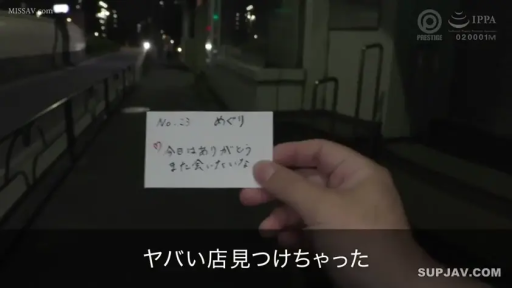 MISSAV.com
PRESTIGE
IPPA
020001M
No.23 めぐり
今日はありがとう
また会いたいな
ヤバい店見つけちゃった
SUPJAV.COM